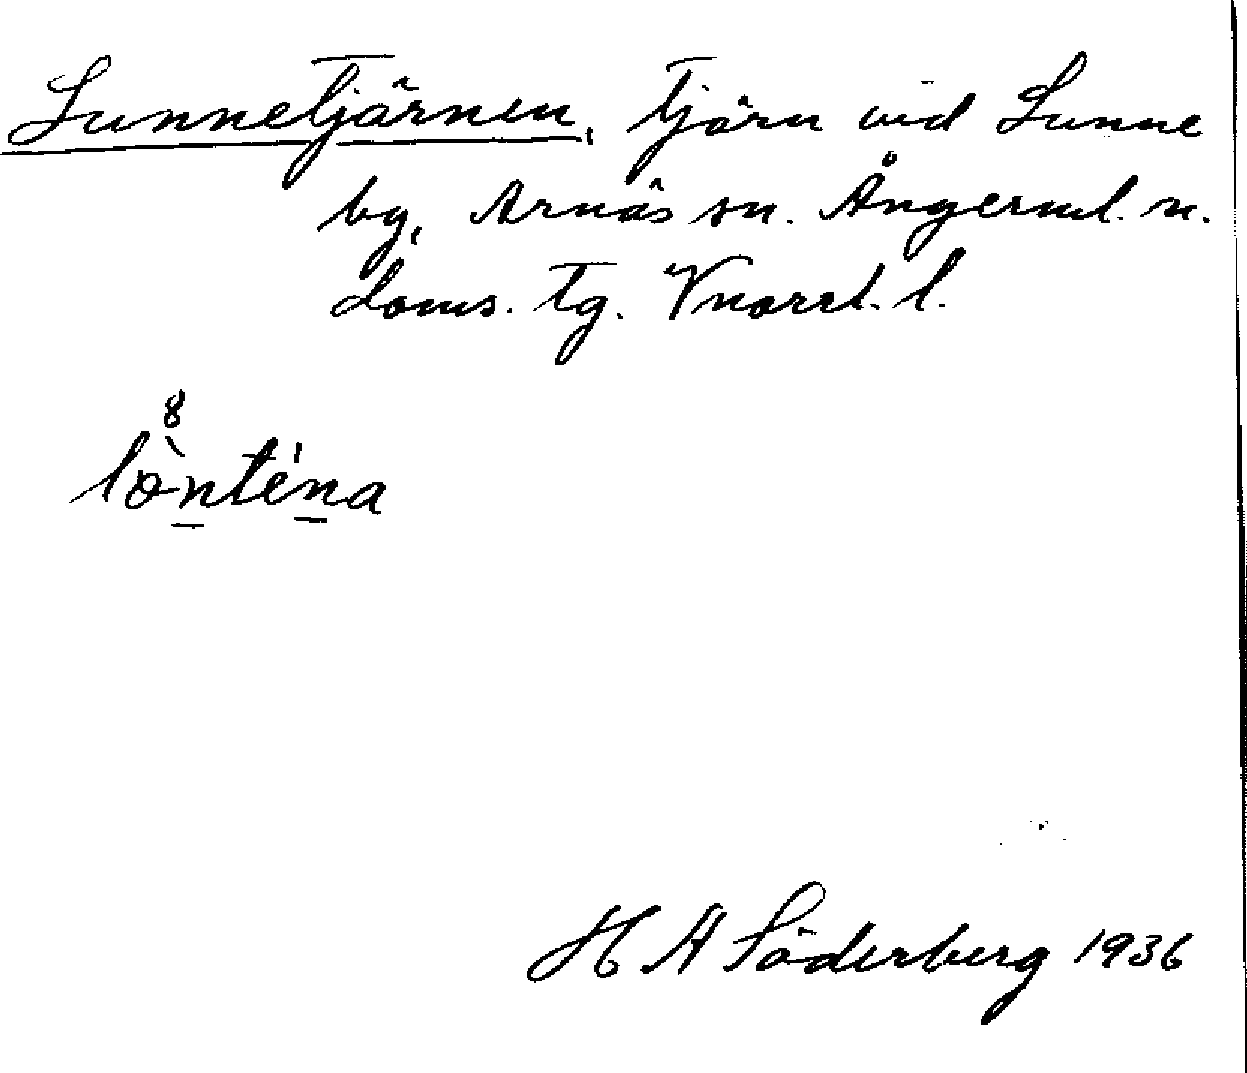 Sunnetjärnen, Tjärn vid Sunne
by, Arnäs sn. Ångerml. n.
doms. tg. Vnorrl. l.
H Ä Söderberg 1936